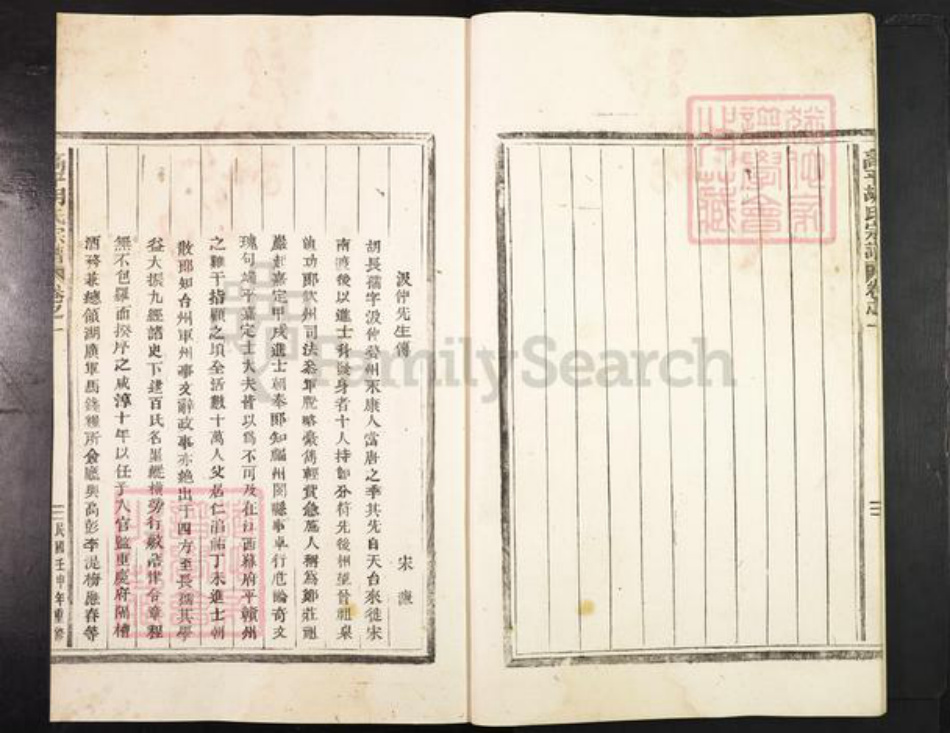 高平胡氏宗譜
卷之一
汲仲先生傳
宋濂
胡長孺字汲仲婺州永康人當唐之季其先自天台來徙宋
南渡後以進士科發身者十人持節分符先後相望曾祖㮚
迪功郎欽州司法參軍脫略豪雋輕貲急施人稱為鄭莊祖
巖起嘉定甲戌進士朝奉郎知福州閩縣事卓行危論奇文
瑰句端平嘉定士大夫皆以為不可及在江西幕府平贛州
之難于指顧之頃全活數十萬人父居仁淳祐丁未進士朝
散郎知台州軍州事文辭政事亦絶出于四方至長孺其學
益大振九經諸史下逮百氏名墨縱橫旁行敷落律令章程
無不包羅而揆序之咸淳十年以任子入官監重慶府酒
酒務兼總領湖廣軍馬錢糧所僉廳與高彭李湜梅應春等
高平胡氏宗譜
卷之一
民國壬申年重修
FamilySearch